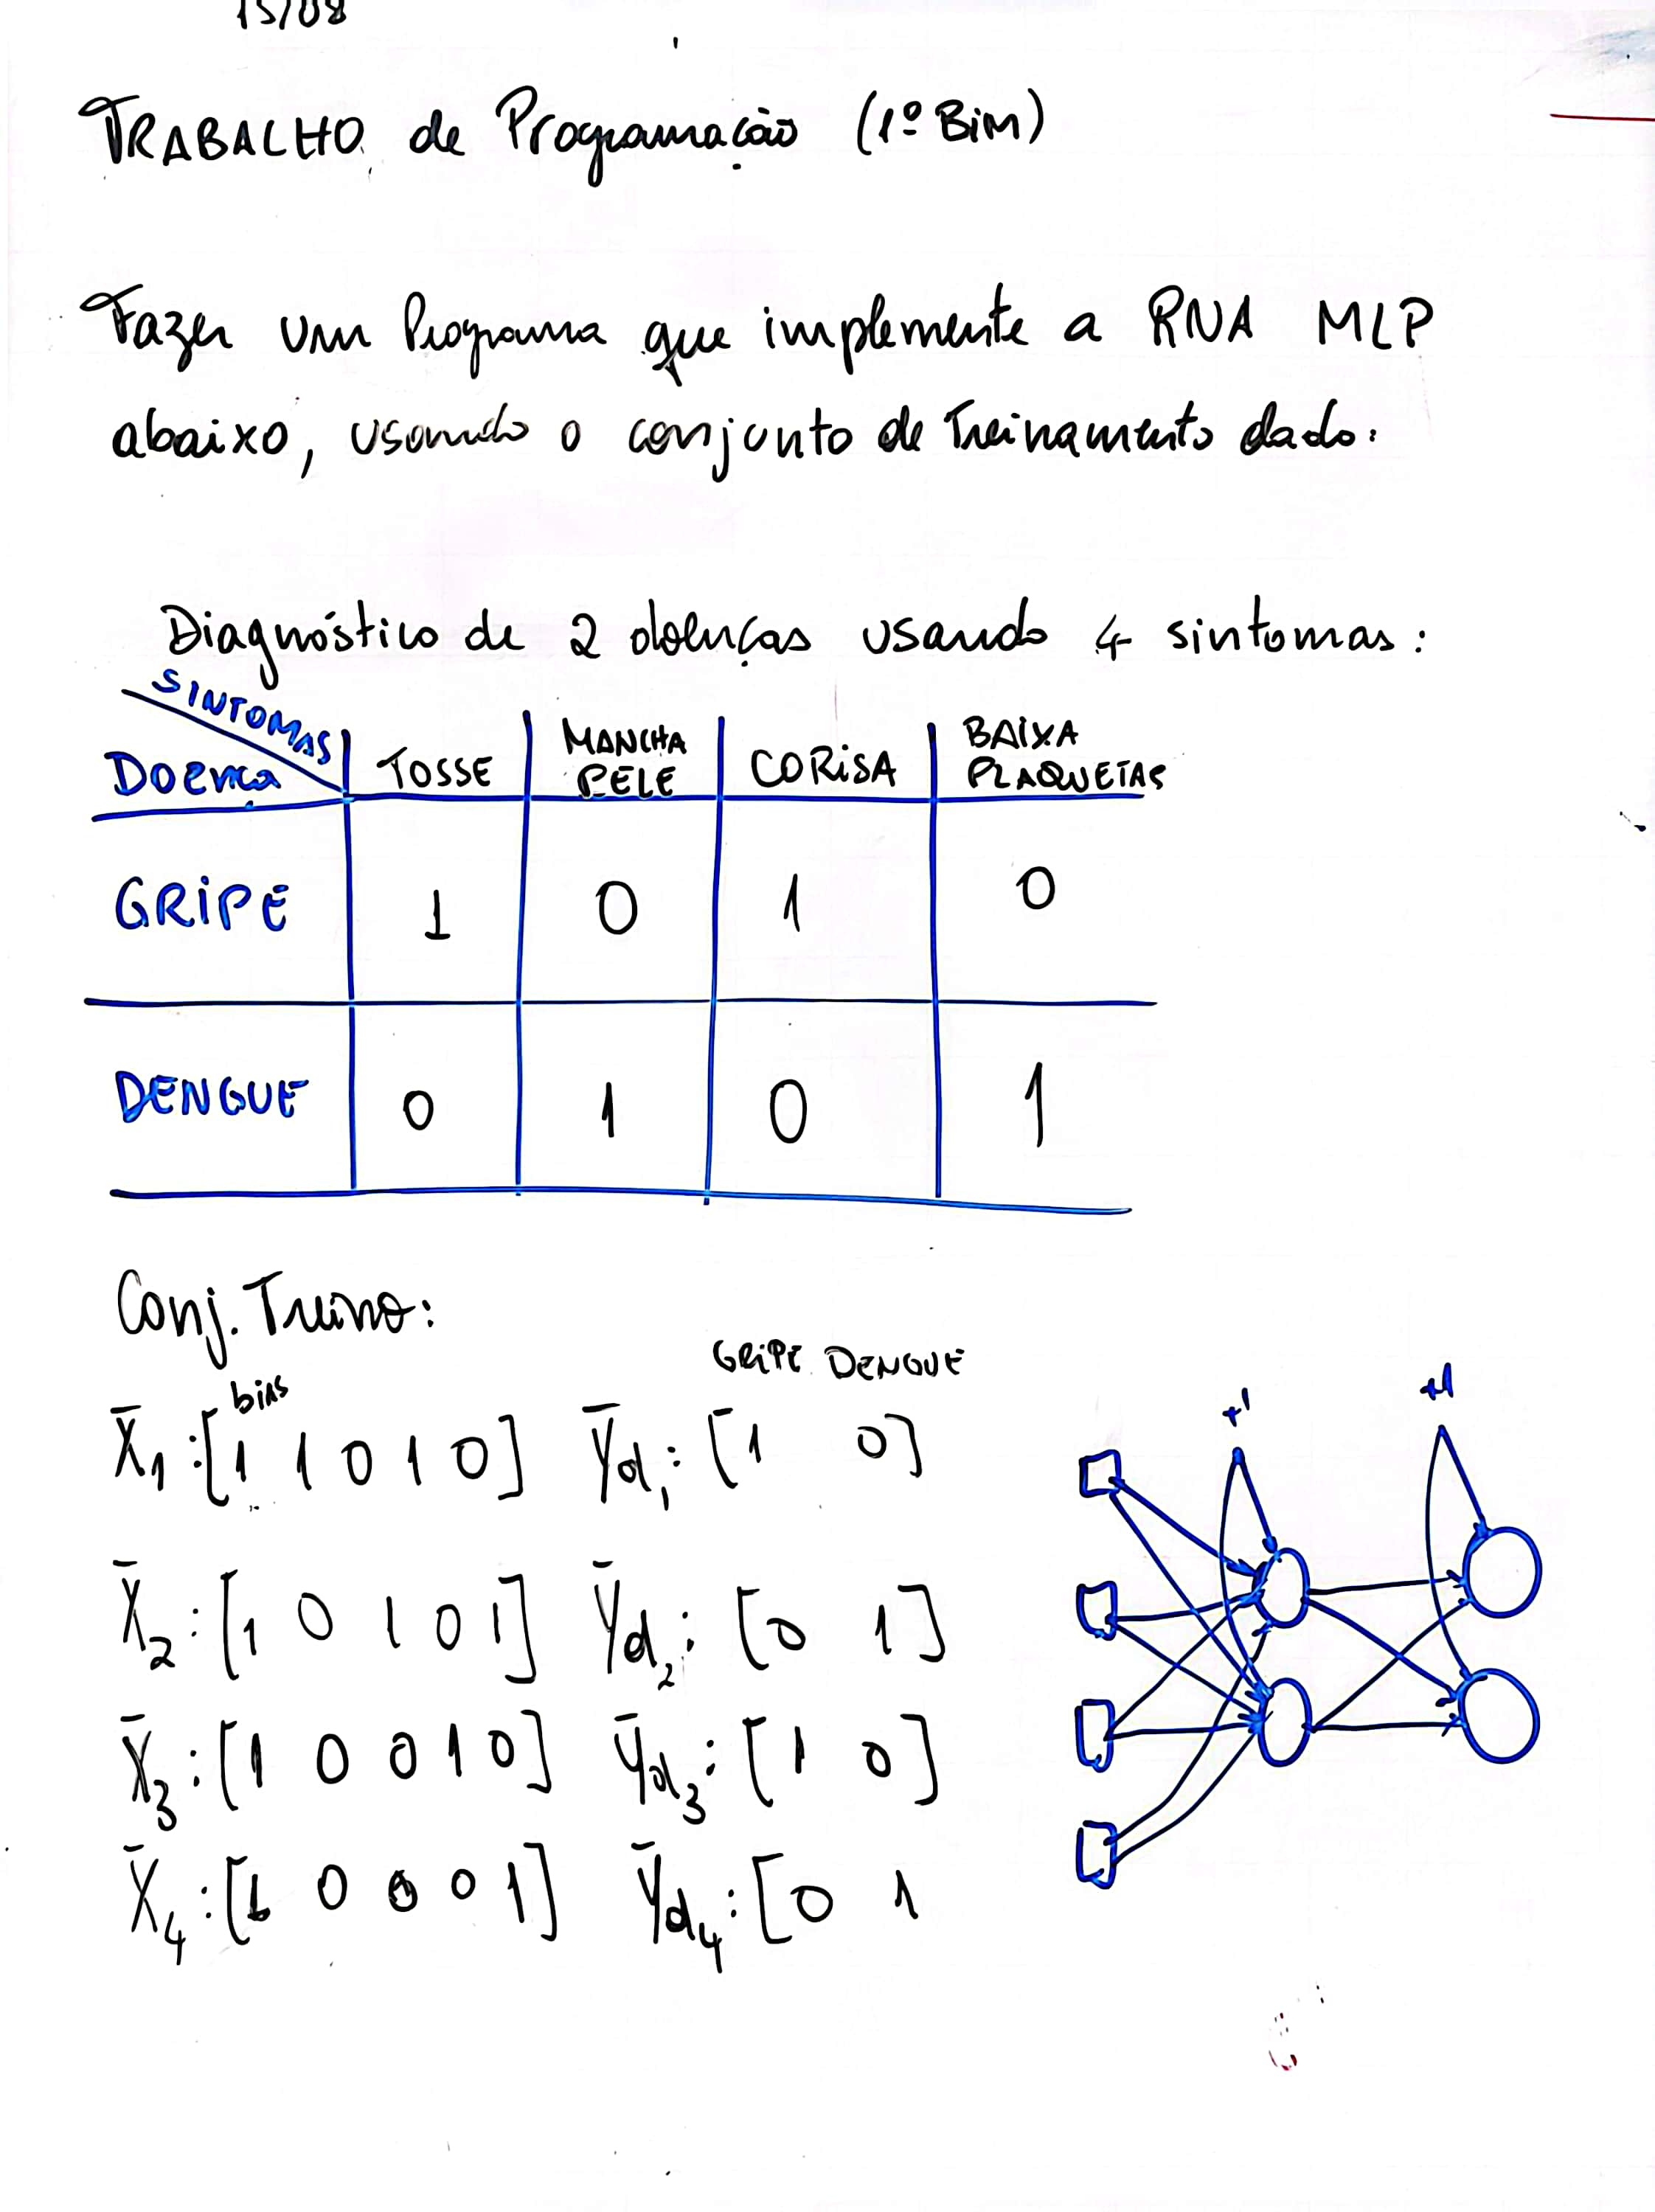 15/08
TRABALHO de Programação (1º Bim)
Fazer um Programa que implemente a RNA MLP
abaixo, usando o conjunto de Treinamento dado.
Diagnóstico de 2 doenças usando 4 sintomas:
SINTOMAS
Doença TOSSE MANCHA PELE CORISA BAIXA PLAQUETAS
GRIPE 1 0 1 0
DENGUE 0 1 0 1
Conj. Treino:
GRIPE DENGUE
bias
X̄1:[1 1 0 1 0] Ȳd1: [1 0]
X̄2:[1 0 1 0 1] Ȳd2: [0 1]
X̄3:[1 0 0 1 0] Ȳd3: [1 0]
X̄4:[1 0 0 0 1] Ȳd4: [0 1
+1 +1